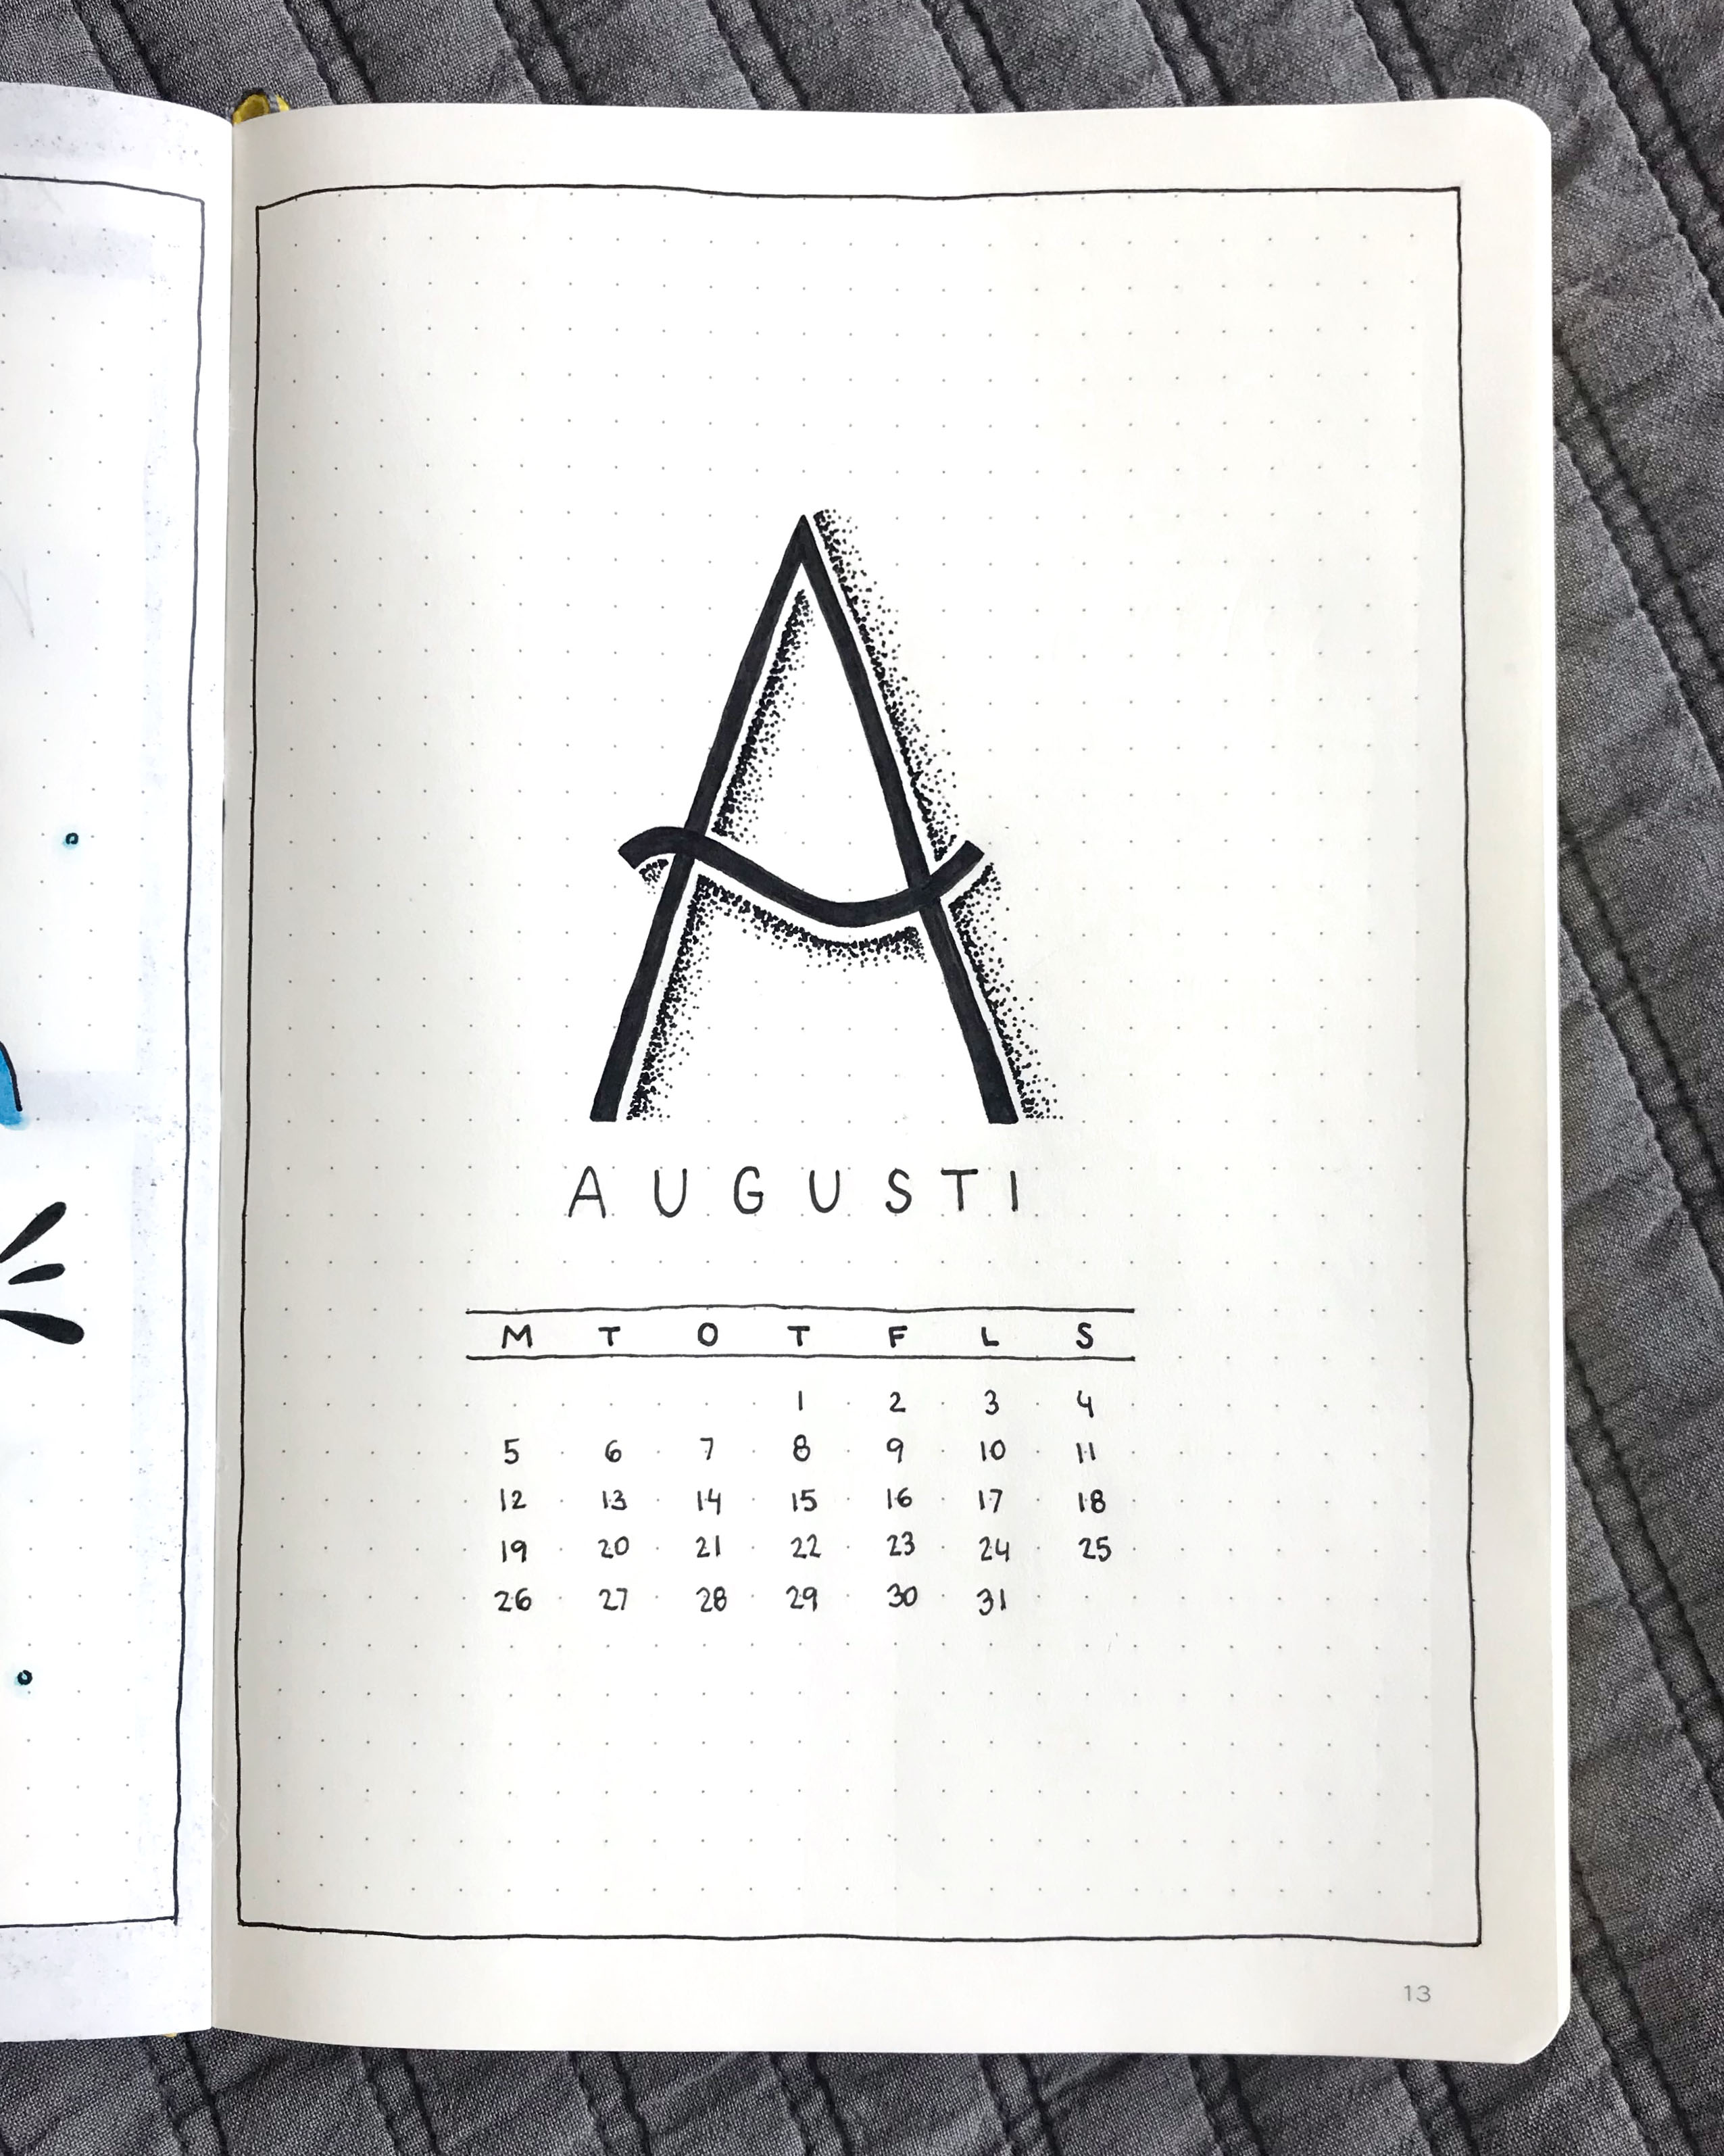 A
AUGUSTI
M T O T F L S
1 2 3 4
5 6 7 8 9 10 11
12 13 14 15 16 17 18
19 20 21 22 23 24 25
26 27 28 29 30 31
13